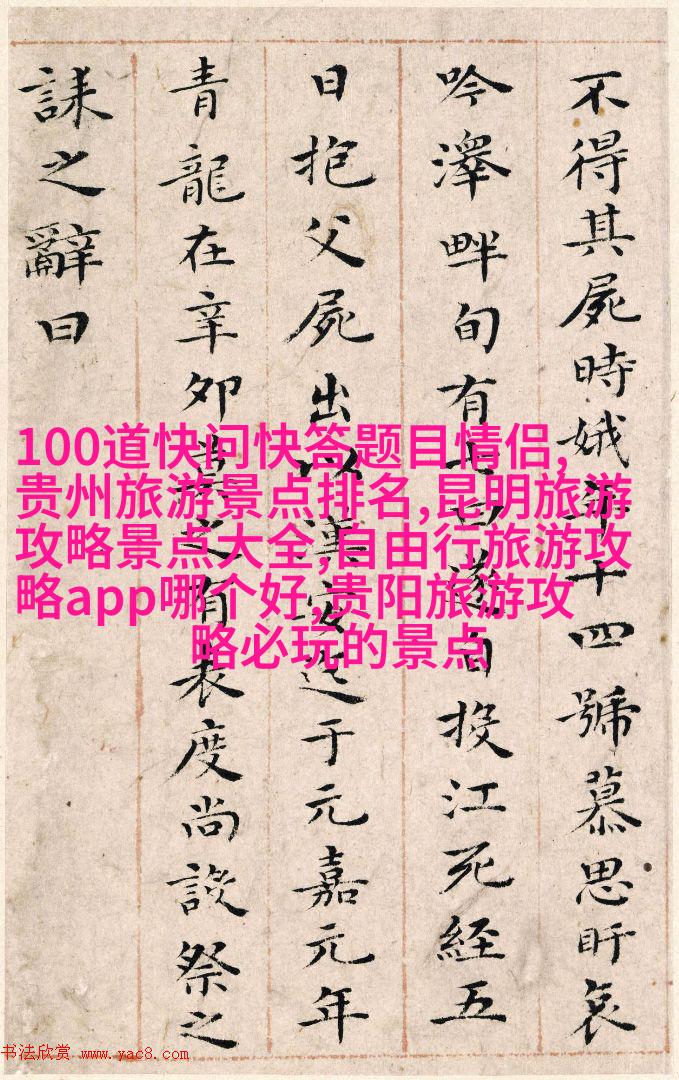 不得其屍時娥年十四號慕思盱哀
吟澤畔旬有七日遂自投江死經五
日抱父屍出以漢安迄于元嘉元年
青龍在辛夘莫之有表度尚設祭之
誄之辭曰
100道快问快答题目情侣,
贵州旅游景点排名,昆明旅游
攻略景点大全,自由行旅游攻
略app哪个好,贵阳旅游攻
略必玩的景点
书法欣赏 www.yac8.com